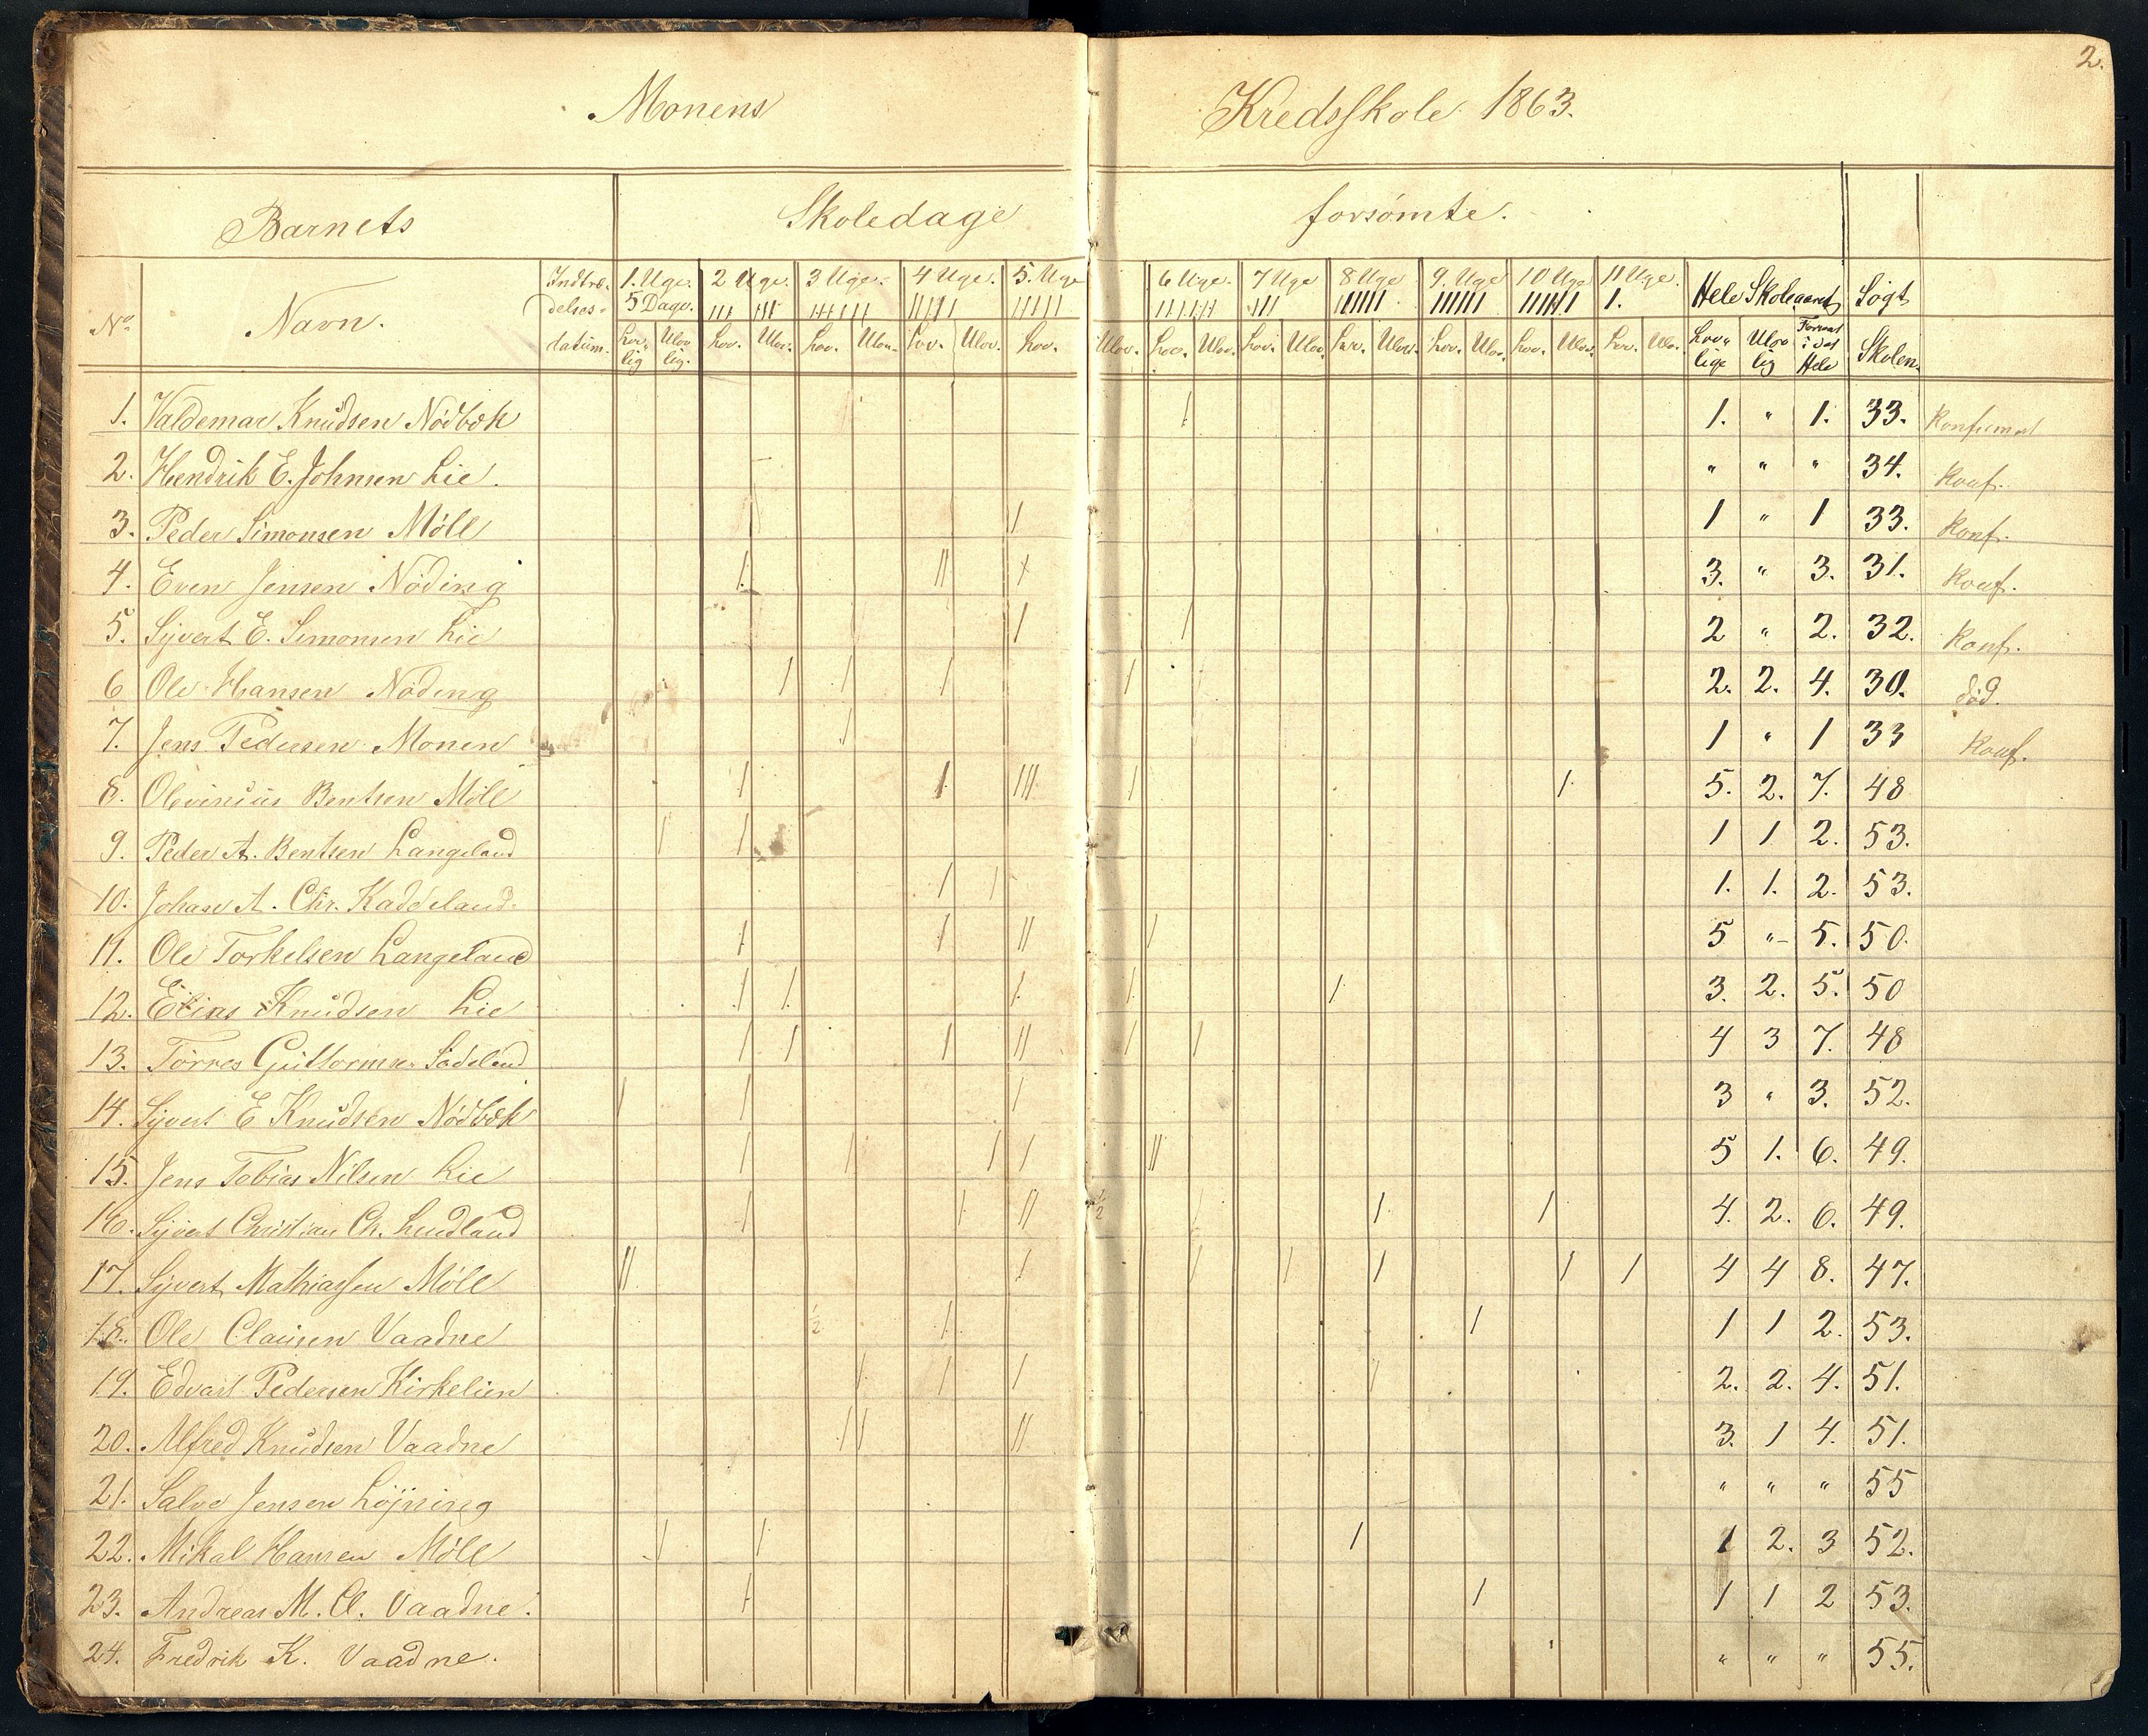 2.
Monens Kredsskole 1863.
Barnets Skoledage forsømte.
No Navn. Indtrædelses-datum. 1. Uge. 5 Dage. 2 Uge. 3 Uge. 4 Uge. 5. Uge 6 Uge. 7 Uge 8 Uge 9. Uge 10 Uge 11 Uge. 1. Hele Skoleaaret Søgt Skolen
Lovlig Ulovlig. Lov. Ulov. Lov. Ulov. Lov. Ulov. Lov. Ulov. Lov. Ulov. Lov. Ulov. Lov. Ulov. Lov. Ulov. Lov. Ulov. Lov. Ulov. Lovlige Ulovlig Forsømt i det Hele
1. Valdemar Knudsen Nødbæk / 1. " 1. 33. Konfirmert
2. Hendrik E. Johnsen Lie. " " " 34. Konf.
3. Peder Simonsen Möll / 1 " 1 33. Konf.
4. Even Jensen Nöding / // 3. " 3. 31. Konf.
5. Sijvert E. Simonsen Lie / / 2 " 2. 32. Konf.
6 Ole Hansen Nöding / / / / 2. 2. 4. 30. död.
7. Jens Pedersen Monen / 1 " 1 33 Konf.
8. Olevinius Bentsen Möll / / /// / / 5. 2. 7. 48
9. Peder A. Bentsen Langeland / / 1 1 2. 53.
10. Johan A. Chr. Kaddeland / / 1. 1. 2. 53.
11. Ole Torkelsen Langeland / / // / 5 " 5. 50.
12. Elias Knudsen Lie / / / / / 3. 2. 5. 50
13. Törres Guttormsen Sodeland / / / // / / 4 3 7. 48
14. Sijvert E Knudsen Nödbæk / / / 3 " 3. 52.
15. Jens Tobias Nilsen Lie / / / / // 5 1. 6. 49.
16. Sijvert Christian Ch. Lindland / / // 1/2 / / 4. 2. 6. 49.
17. Sijvert Mathiassen Möll // / / / / / / 4 4 8. 47.
18. Ole Clausen Vaadne 1/2 / / 1 1 2. 53.
19. Edvart Pedersen Kirkelien / / / / 2. 2. 4. 51.
20. Alfred Knudsen Vaadne / / // 3. 1 4. 51.
21. Salve Jensen Löjning " " " 55
22. Mikal Hansen Möll / / / 1 2. 3 52.
23. Andreas M. Cl. Vaadne. / / 1 1 2 53.
24. Fredrik K. Vaadne. " " " 55.